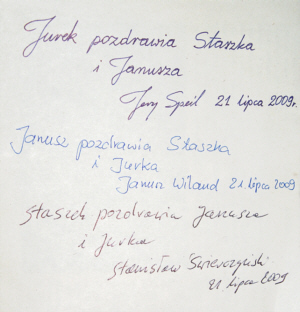 Jurek pozdrawia Staszka
i Janusza
Jerzy Speil 21 lipca 2009r.
Janusz pozdrawia Staszka
i Jurka
Janusz Wiland 21 lipca 2009
Staszek pozdrawia Janusza
i Jurka
Stanisław Świerczyński
21 lipca 2009